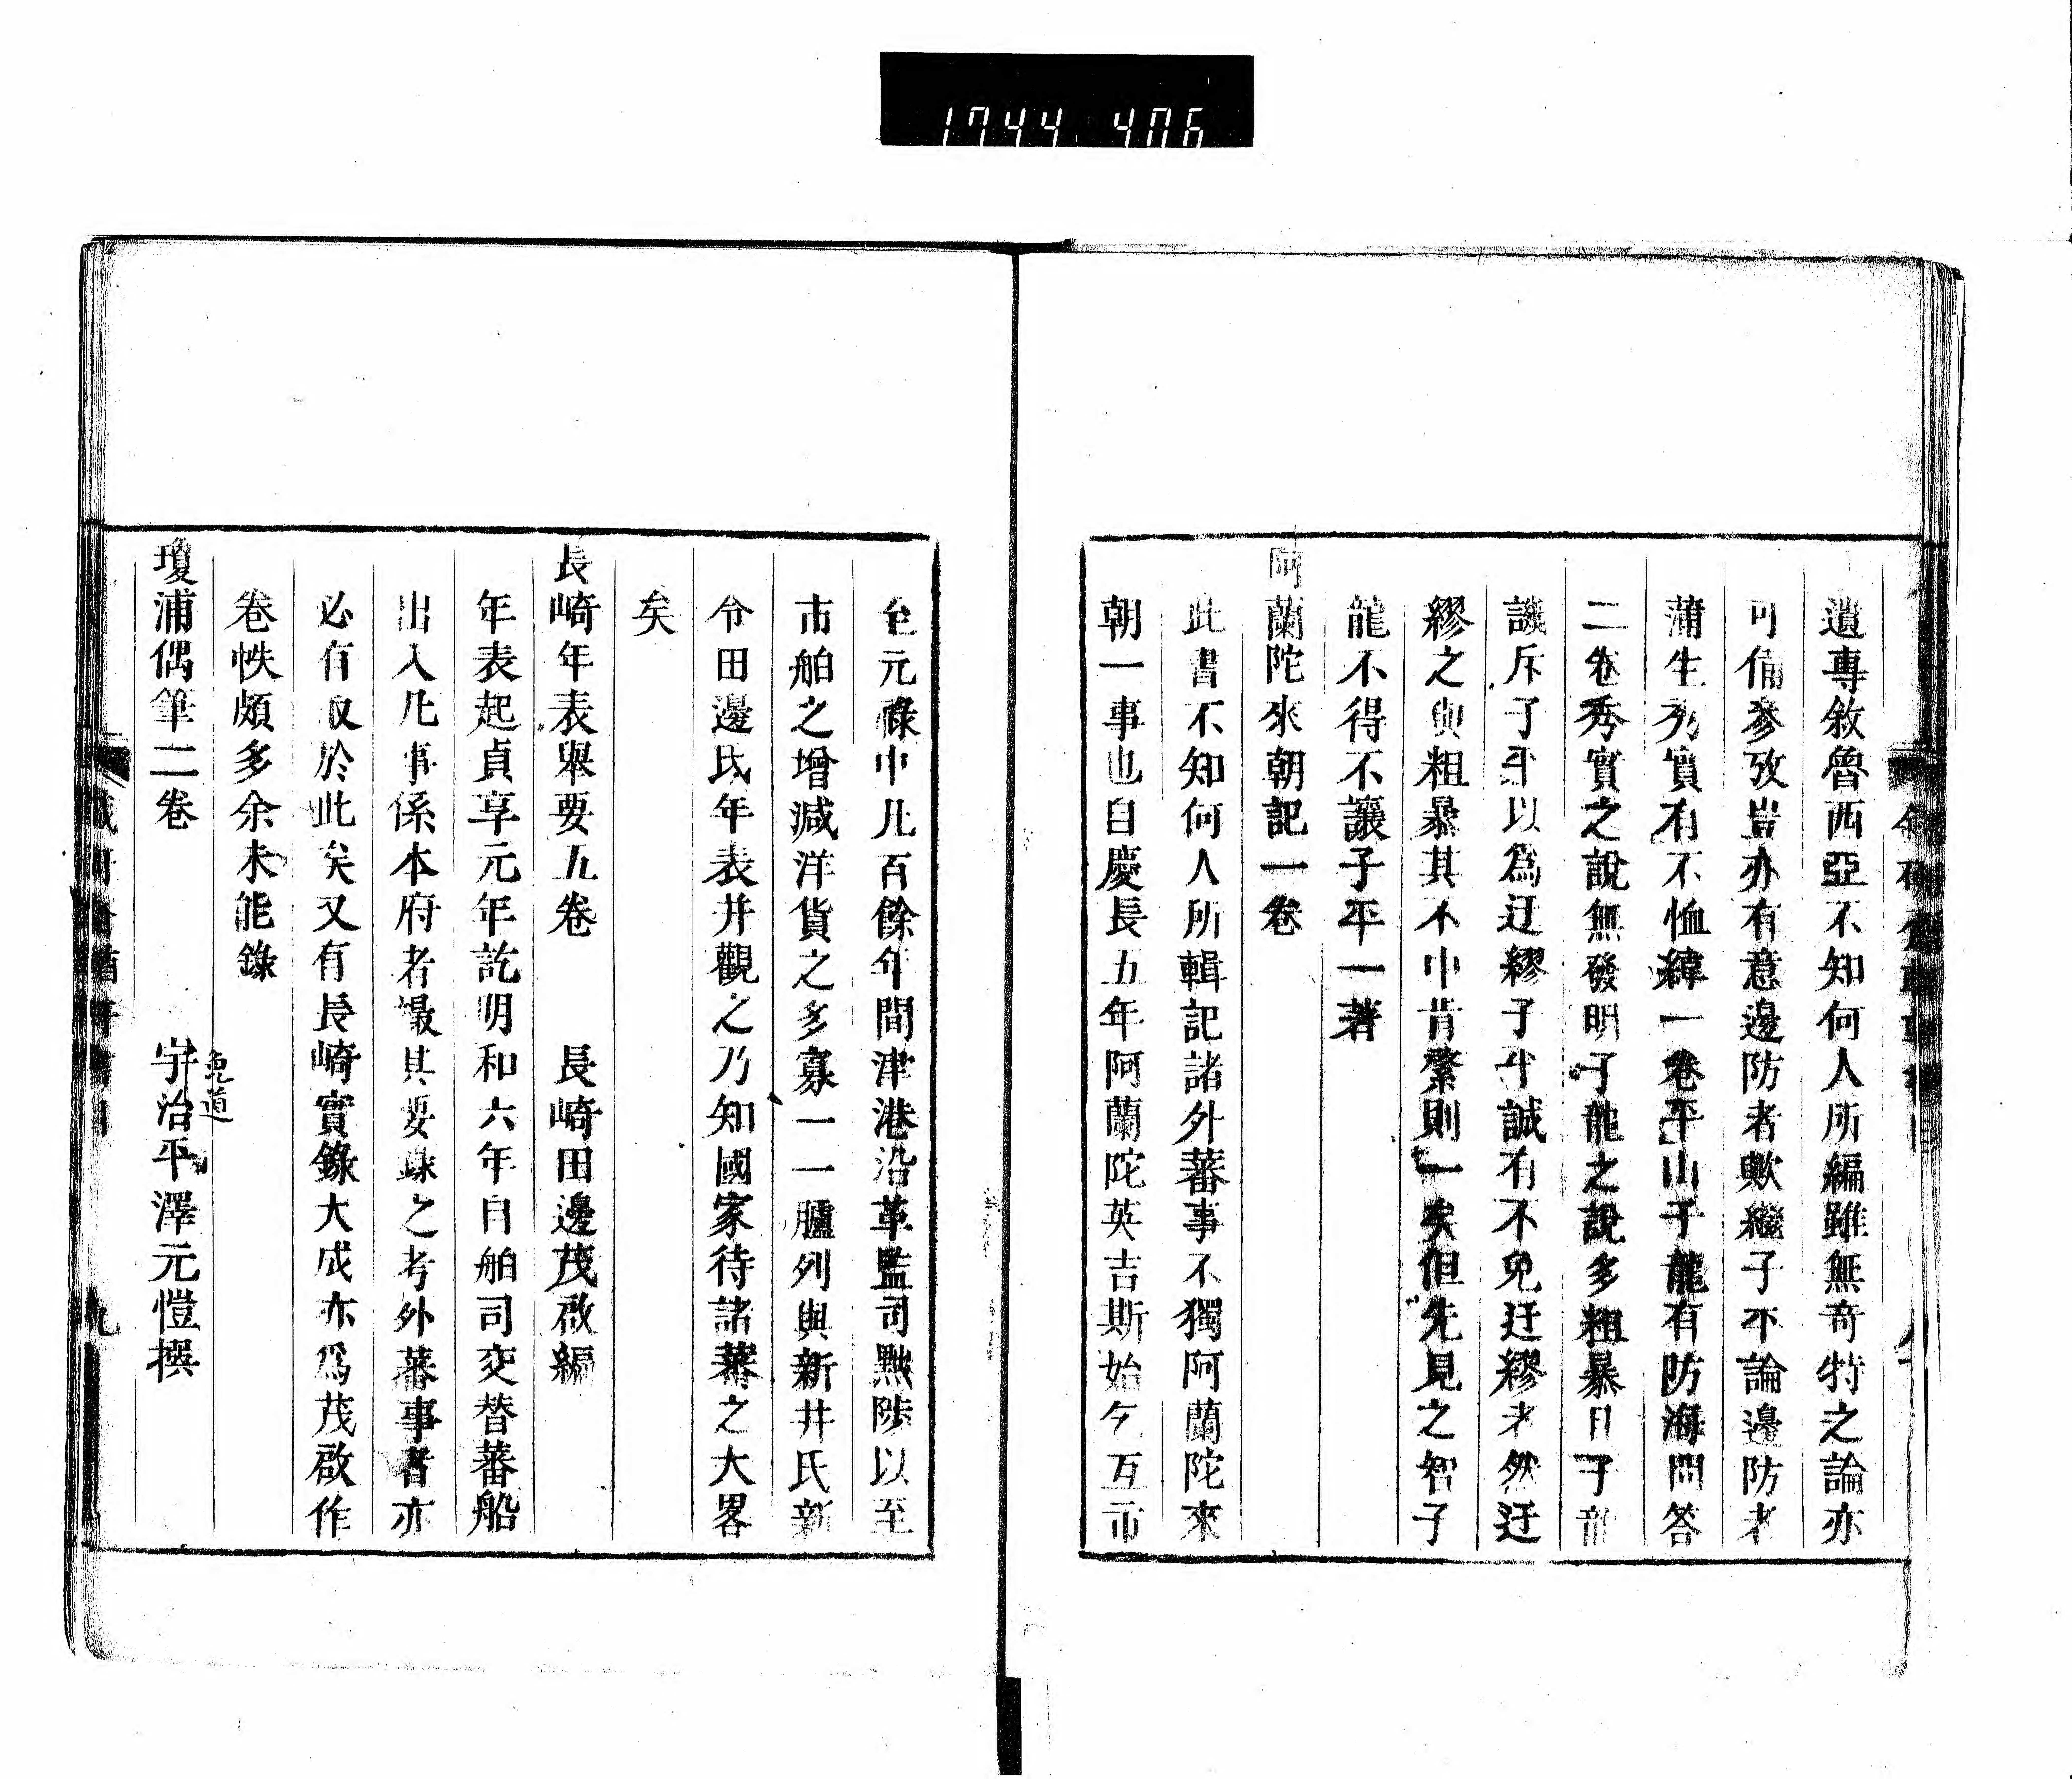 1744 406
遺專敘魯西亞不知何人所編雖無奇特之論亦
可備參攷豈亦有意邊防者歟繼子平論邊防者
蒲生秀實有不恤緯一卷平山子龍有防海問答
二卷秀實之說無發明子龍之說多粗暴且子龍
譏斥子平以為迂繆子平誠有不免迂繆者然迂
繆之與粗暴其不中肯綮則一矣但先見之智子
龍不得不讓子平一著
阿蘭陀來朝記一卷
此書不知何人所輯記諸外蕃事不獨阿蘭陀來
朝一事也自慶長五年阿蘭陀英吉斯始乞互市
至元祿中凡百餘年間津港沿革監司黜陟以至
市舶之增減洋貨之多寡一一臚列與新井氏新
令田邊氏年表并觀之乃知國家待諸蕃之大畧
矣
長崎年表舉要五卷　長崎田邊茂啟編
年表起貞享元年訖明和六年自舶司交替蕃船
出入凡事係本府者最其要錄之考外蕃事者亦
必有取於此矣又有長崎實錄大成亦為茂啟作
卷帙頗多余未能錄
瓊浦偶筆二卷　宇治平澤元愷撰
兔道
九